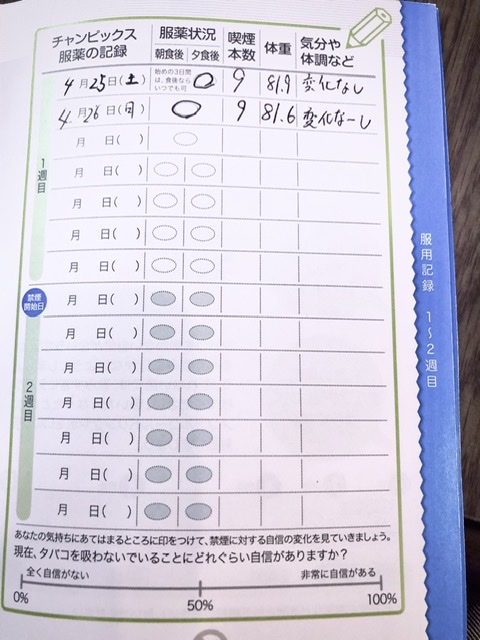 チャンピックス 服薬の記録 服薬状況 喫煙本数 体重 気分や体調など
朝食後 夕食後
4月25日(土) 始めの3日間は、食後ならいつでも可 9 81.9 変化なし
4月26日(日) 9 81.6 変化なーし
月 日( )
1週目
月 日( )
月 日( )
月 日( )
月 日( )
禁煙開始日
月 日( )
月 日( )
月 日( )
2週目
月 日( )
月 日( )
月 日( )
月 日( )
あなたの気持ちにあてはまるところに印をつけて、禁煙に対する自信の変化を見ていきましょう。
現在、タバコを吸わないでいることにどれぐらい自信がありますか?
全く自信がない 非常に自信がある
0% 50% 100%
服用記録 1～2週目